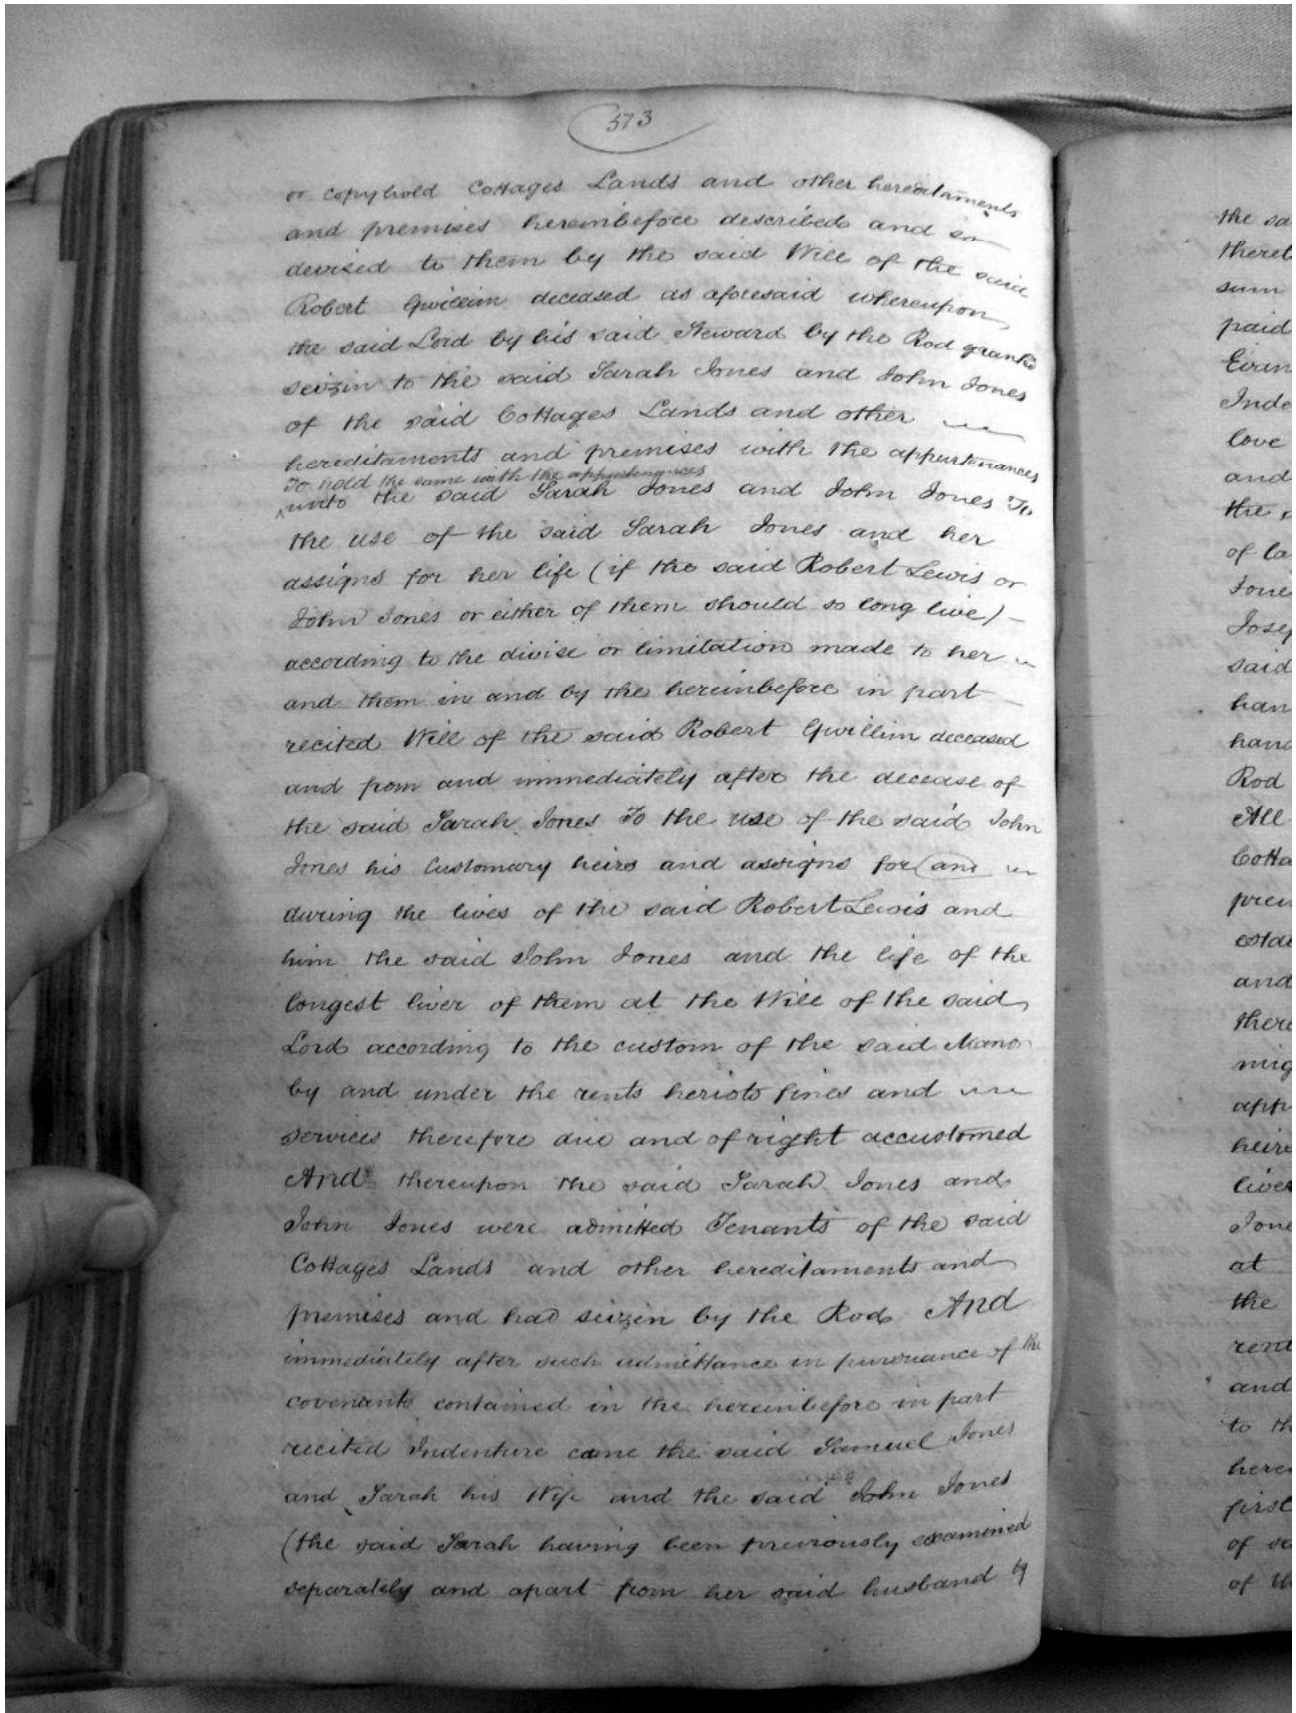 573
or copyhold Cottages Lands and other hereditaments
and premises hereinbefore described and so
devised to them by the said Will of the said
Robert Gwillim deceased as aforesaid whereupon
the said Lord by his said Steward by the Rod granted
seizin to the said Sarah Jones and John Jones
of the said Cottages Lands and other
hereditaments and premises with the appurtenances
To hold the same with the appurtenances
unto the said Sarah Jones and John Jones To
the use of the said Sarah Jones and her
assigns for her life (if the said Robert Lewis or
John Jones or either of them should so long live)
according to the divise or limitation made to her
and them in and by the hereinbefore in part
recited Will of the said Robert Gwillim deceased
and from and immediately after the decease of
the said Sarah Jones To the use of the said John
Jones his Customary heirs and assigns for and
during the lives of the said Robert Lewis and
him the said John Jones and the life of the
longest liver of them at the Will of the said
Lord according to the custom of the said Manor
by and under the rents heriots fines and
services therefore due and of right accustomed
And thereupon the said Sarah Jones and
John Jones were admitted Tenants of the said
Cottages Lands and other hereditaments and
premises and had seizin by the Rod And
immediately after such admittance in pursuance of the
covenants contained in the hereinbefore in part
recited Indenture came the said Samuel Jones
and Sarah his Wife and the said John Jones
(the said Sarah having been previously examined
separately and apart from her said husband by
the
sum
paid
love
and
the
of
said
Rod
All
and
at
the
and
to
first
of
of